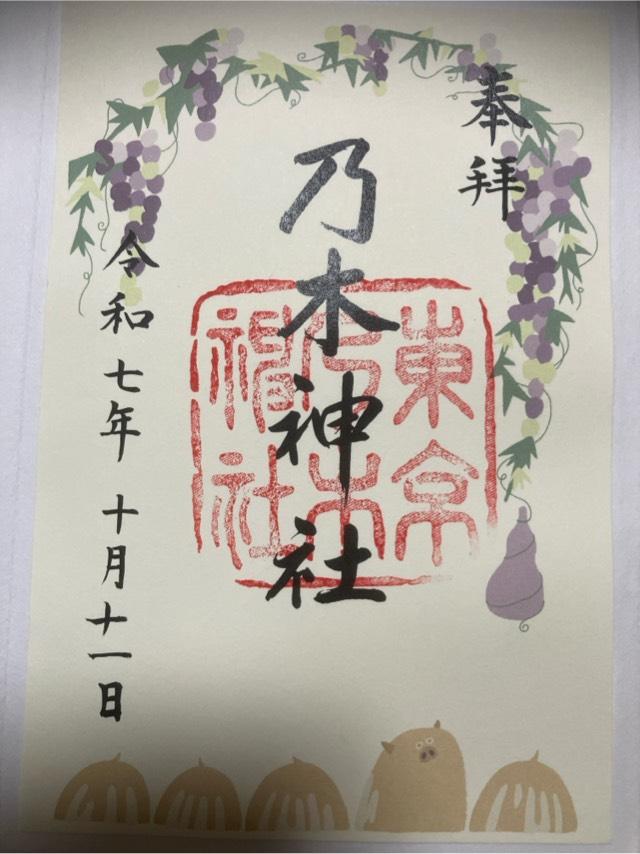 奉拝
乃木神社
東京
乃木
神社
令和七年 十月十一日